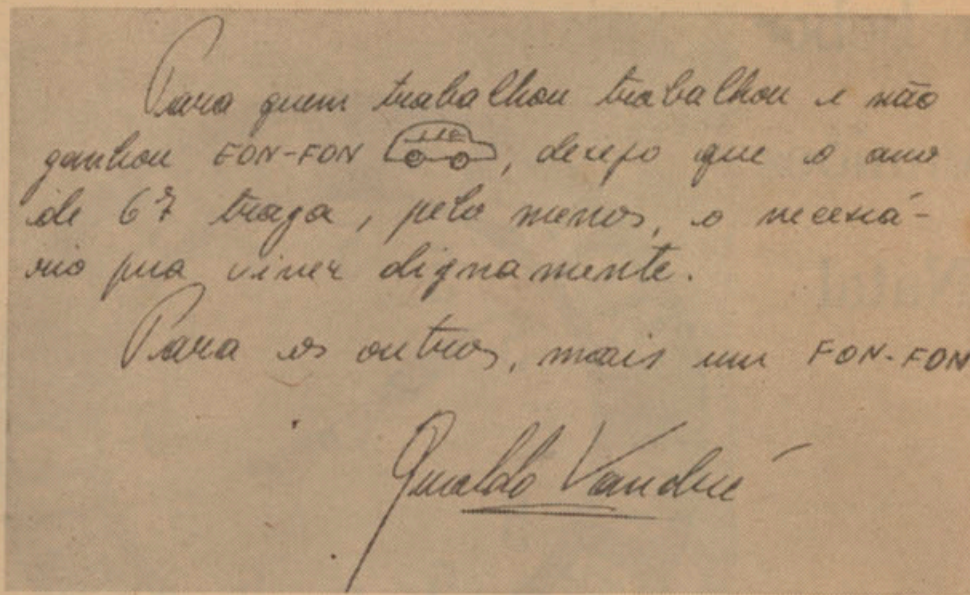 Para quem trabalhou trabalhou e não
ganhou FON-FON , desejo que o ano
de 67 traga, pelo menos, o necessá-
rio pra viver dignamente.
Para os outros, mais um FON-FON
Geraldo Vandré